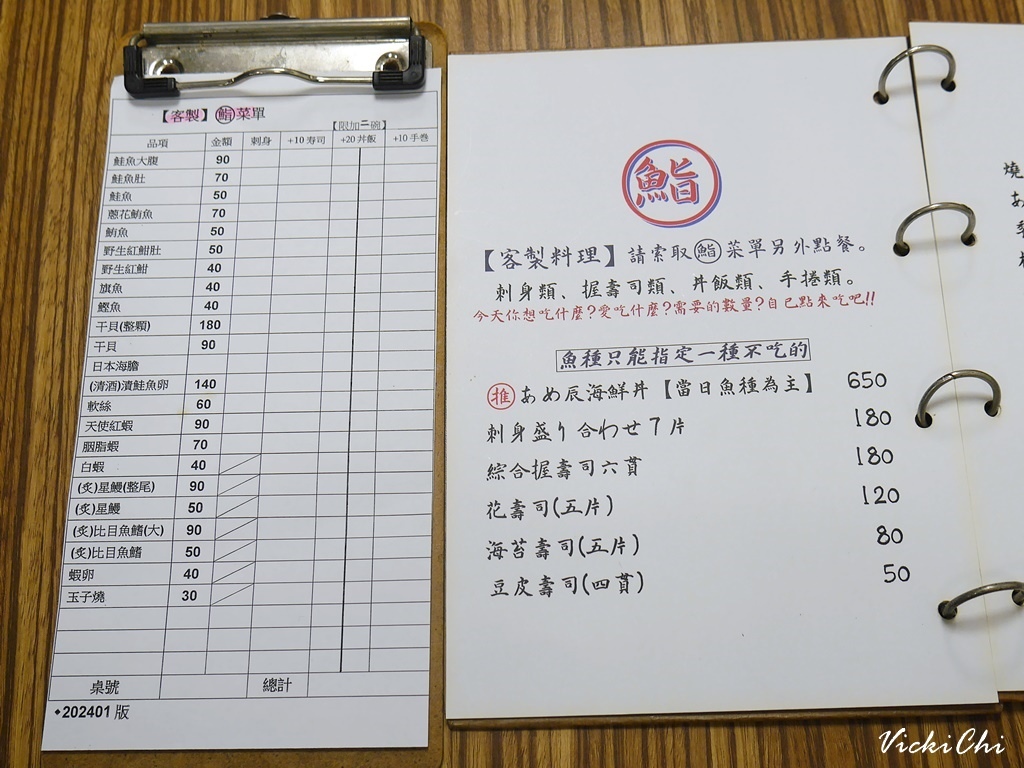 【客製】鮨菜單
【限加二碗】
品項 金額 刺身 +10寿司 +20丼飯 +10手巻
鮭魚大腹 90
鮭魚肚 70
鮭魚 50
蔥花鮪魚 70
鮪魚 50
野生紅魽肚 50
野生紅魽 40
旗魚 40
鰹魚 40
干貝(整顆) 180
干貝 90
日本海膽
(清酒)漬鮭魚卵 140
軟絲 60
天使紅蝦 90
胭脂蝦 70
白蝦 40
(炙)星鰻(整尾) 90
(炙)星鰻 50
(炙)比目魚鰭(大) 90
(炙)比目魚鰭 50
蝦卵 40
玉子燒 30
桌號 總計
◆202401 版
鮨
【客製料理】請索取鮨菜單另外點餐。
刺身類、握壽司類、丼飯類、手捲類。
今天你想吃什麼?愛吃什麼?需要的數量?自己點來吃吧!!
魚種只能指定一種不吃的
推 あめ辰海鮮丼【當日魚種為主】 650
刺身盛り合わせ7片 180
綜合握壽司六貫 180
花壽司(五片) 120
海苔壽司(五片) 80
豆皮壽司(四貫) 50
燒
あ
VickiChi